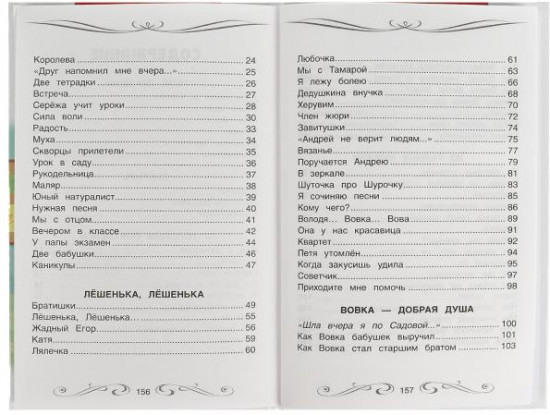 Королева 24
«Друг напомнил мне вчера...» 25
Две тетрадки 26
Встреча 27
Серёжа учит уроки 28
Сила воли 30
Радость 33
Муха 34
Скворцы прилетели 35
Урок в саду 36
Рукодельница 37
Маляр 38
Юный натуралист 39
Нужная песня 40
Мы с отцом 41
Вечером в классе 42
У папы экзамен 44
Две бабушки 46
Каникулы 47
ЛЁШЕНЬКА, ЛЁШЕНЬКА
Братишки 49
Лёшенька, Лёшенька... 55
Жадный Егор 56
Катя 59
Лялечка 60
156
Любочка 61
Мы с Тамарой 63
Я лежу болею 65
Дедушкина внучка 68
Херувим 70
Член жюри 72
Завитушки 74
«Андрей не верит людям...» 75
Вязанье 77
Поручается Андрею 79
В зеркале 81
Шуточка про Шурочку 83
Я сочиняю песни 85
Кому чего? 86
Володя... Вовка... Вова 89
Она у нас красавица 91
Квартет 92
Петя утомлён 94
Когда закусишь удила 95
Советчик 97
Приходите мне помочь 98
ВОВКА — ДОБРАЯ ДУША
«Шла вчера я по Садовой...» 100
Как Вовка бабушек выручил 101
Как Вовка стал старшим братом 103
157